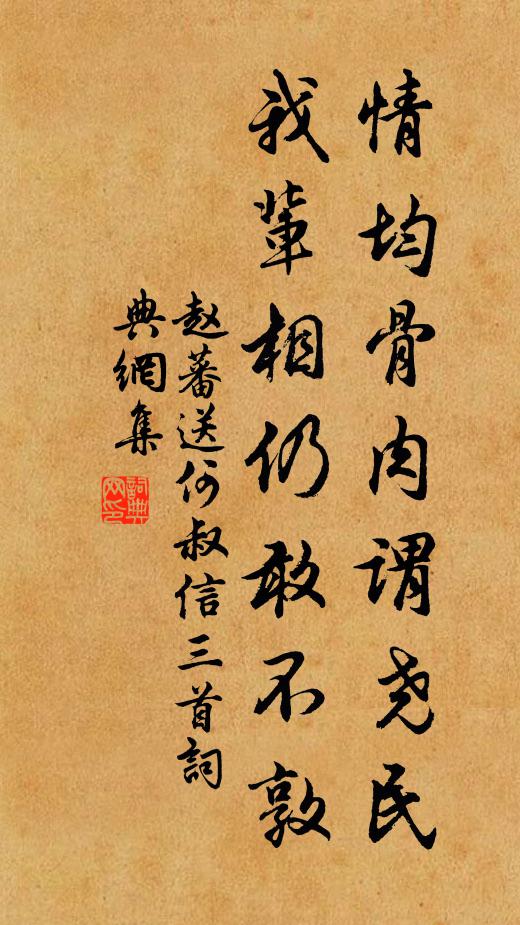 情均骨肉谓尧民
我辈相仍敢不敦
赵蕃送何叔信三首詞
典網集
詞典
网印